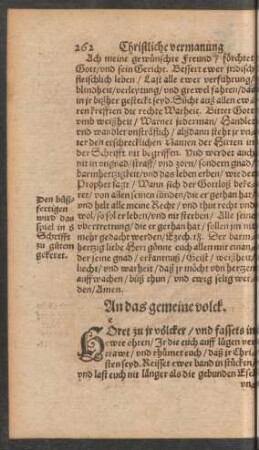 262 Christliche vermanung
Ach meine gewünschte Freund / förchtet
Gott / vnd sein Gericht. Bessert ewer jrdisch
fleischlich leben / Last alle ewer verführung /
blindheit / verleytung / vnd grewel fahren / da
in jr bißher gesteckt seyd. Sücht auß allen ewe
ren krefften die rechte Warheit. Bittet Gott
vmb weißheit / Warnet jederman / Handlet
vnd wandlet vnsträflich / alßdann steht jr vn
ter den erschrecklichen Namen der Hirten in
der Schrifft nit begriffen. Vnd werden auch
nit in vngnad / straff / vnd zorn / sondern gnad /
barmhertzigkeit / vnd das leben erben / wie der
Prophet sagt / Wann sich der Gottloß beke
ret / von allen seinen sünden / die er gethan hat /
vnd helt alle meine Recht / vnd thut recht vnd
wol / so sol er leben / vnd nit sterben / Alle seine
vbertrettung / die er gethan hat / sollen jm nit
mehr gedacht werden / Ezech. 18. Der barm
hertzig liebe Herr günne euch allen mit einan
der seine gnad / erkantnuß / Geist / weißheit /
liecht / vnd warheit / daß jr möcht von hertzen
auffwachen / büß thun / vnd ewig selig wer
den / Amen.
Den büß
fertigen
wird das
spiel in 8
Schrifft
zu gütem
gekeret.
An das gemeine volck.
Höret zu jr völcker / vnd fassets in
ewre ohren / Jr die euch auff lügen ver
trawt / vnd rhümet euch / daß jr Chri
sten seyd. Reisset ewer band in stücken /
vnd last euch nit länger als die gebunden Esel